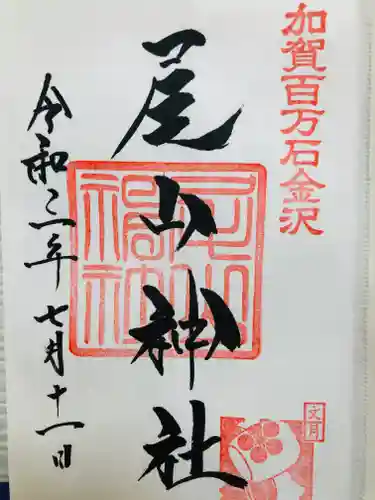 加賀百万石金沢
尾山神社
尾山神社
令和二年七月十一日
文月